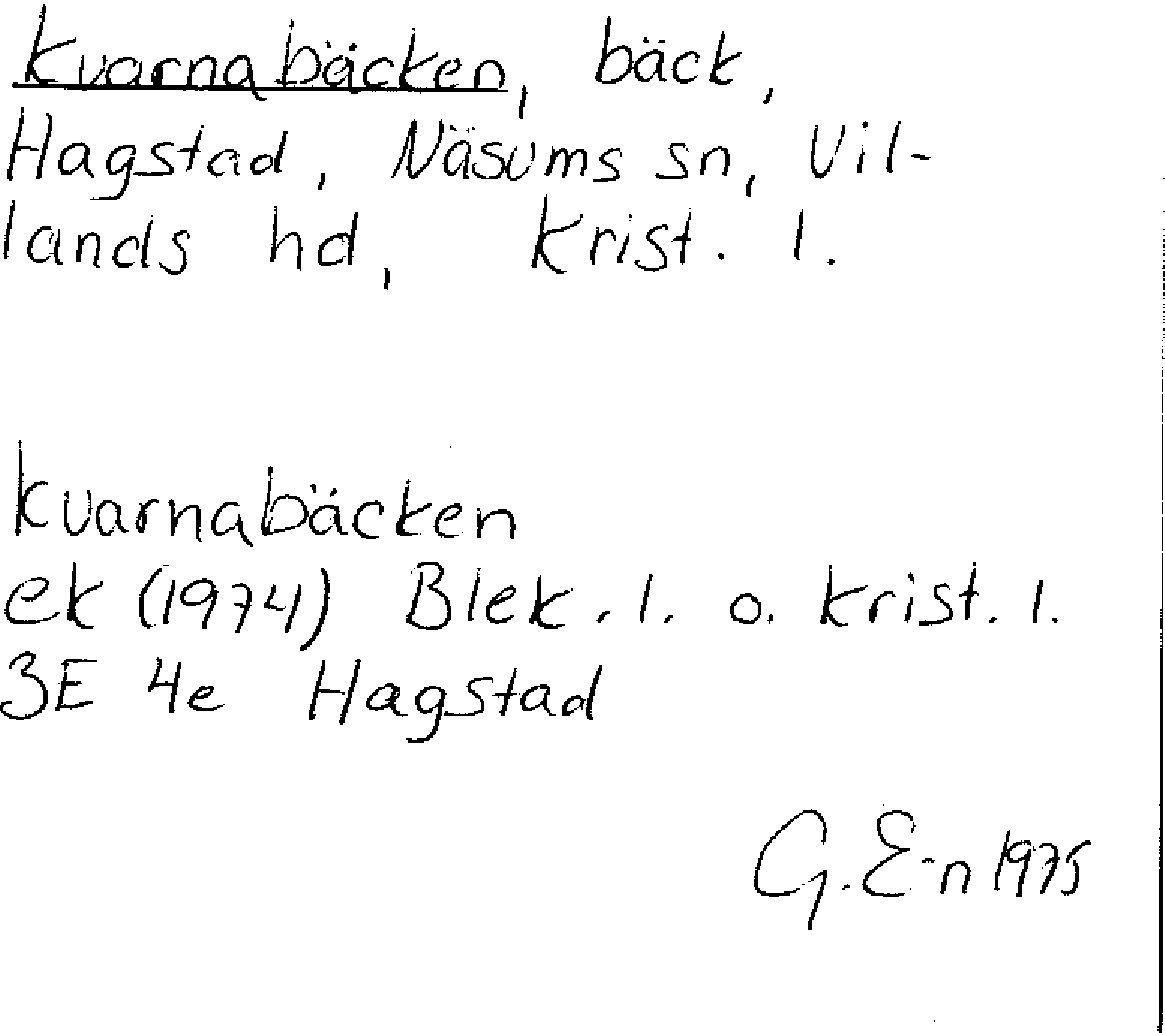 Kvarnabäcken, bäck,
Hagstad, Näsums sn, Vil-
lands hd, Krist. l.
Kvarnabäcken
ek (1974) Blek. l. o. Krist. l.
3E 4e Hagstad
G. E-n 1975